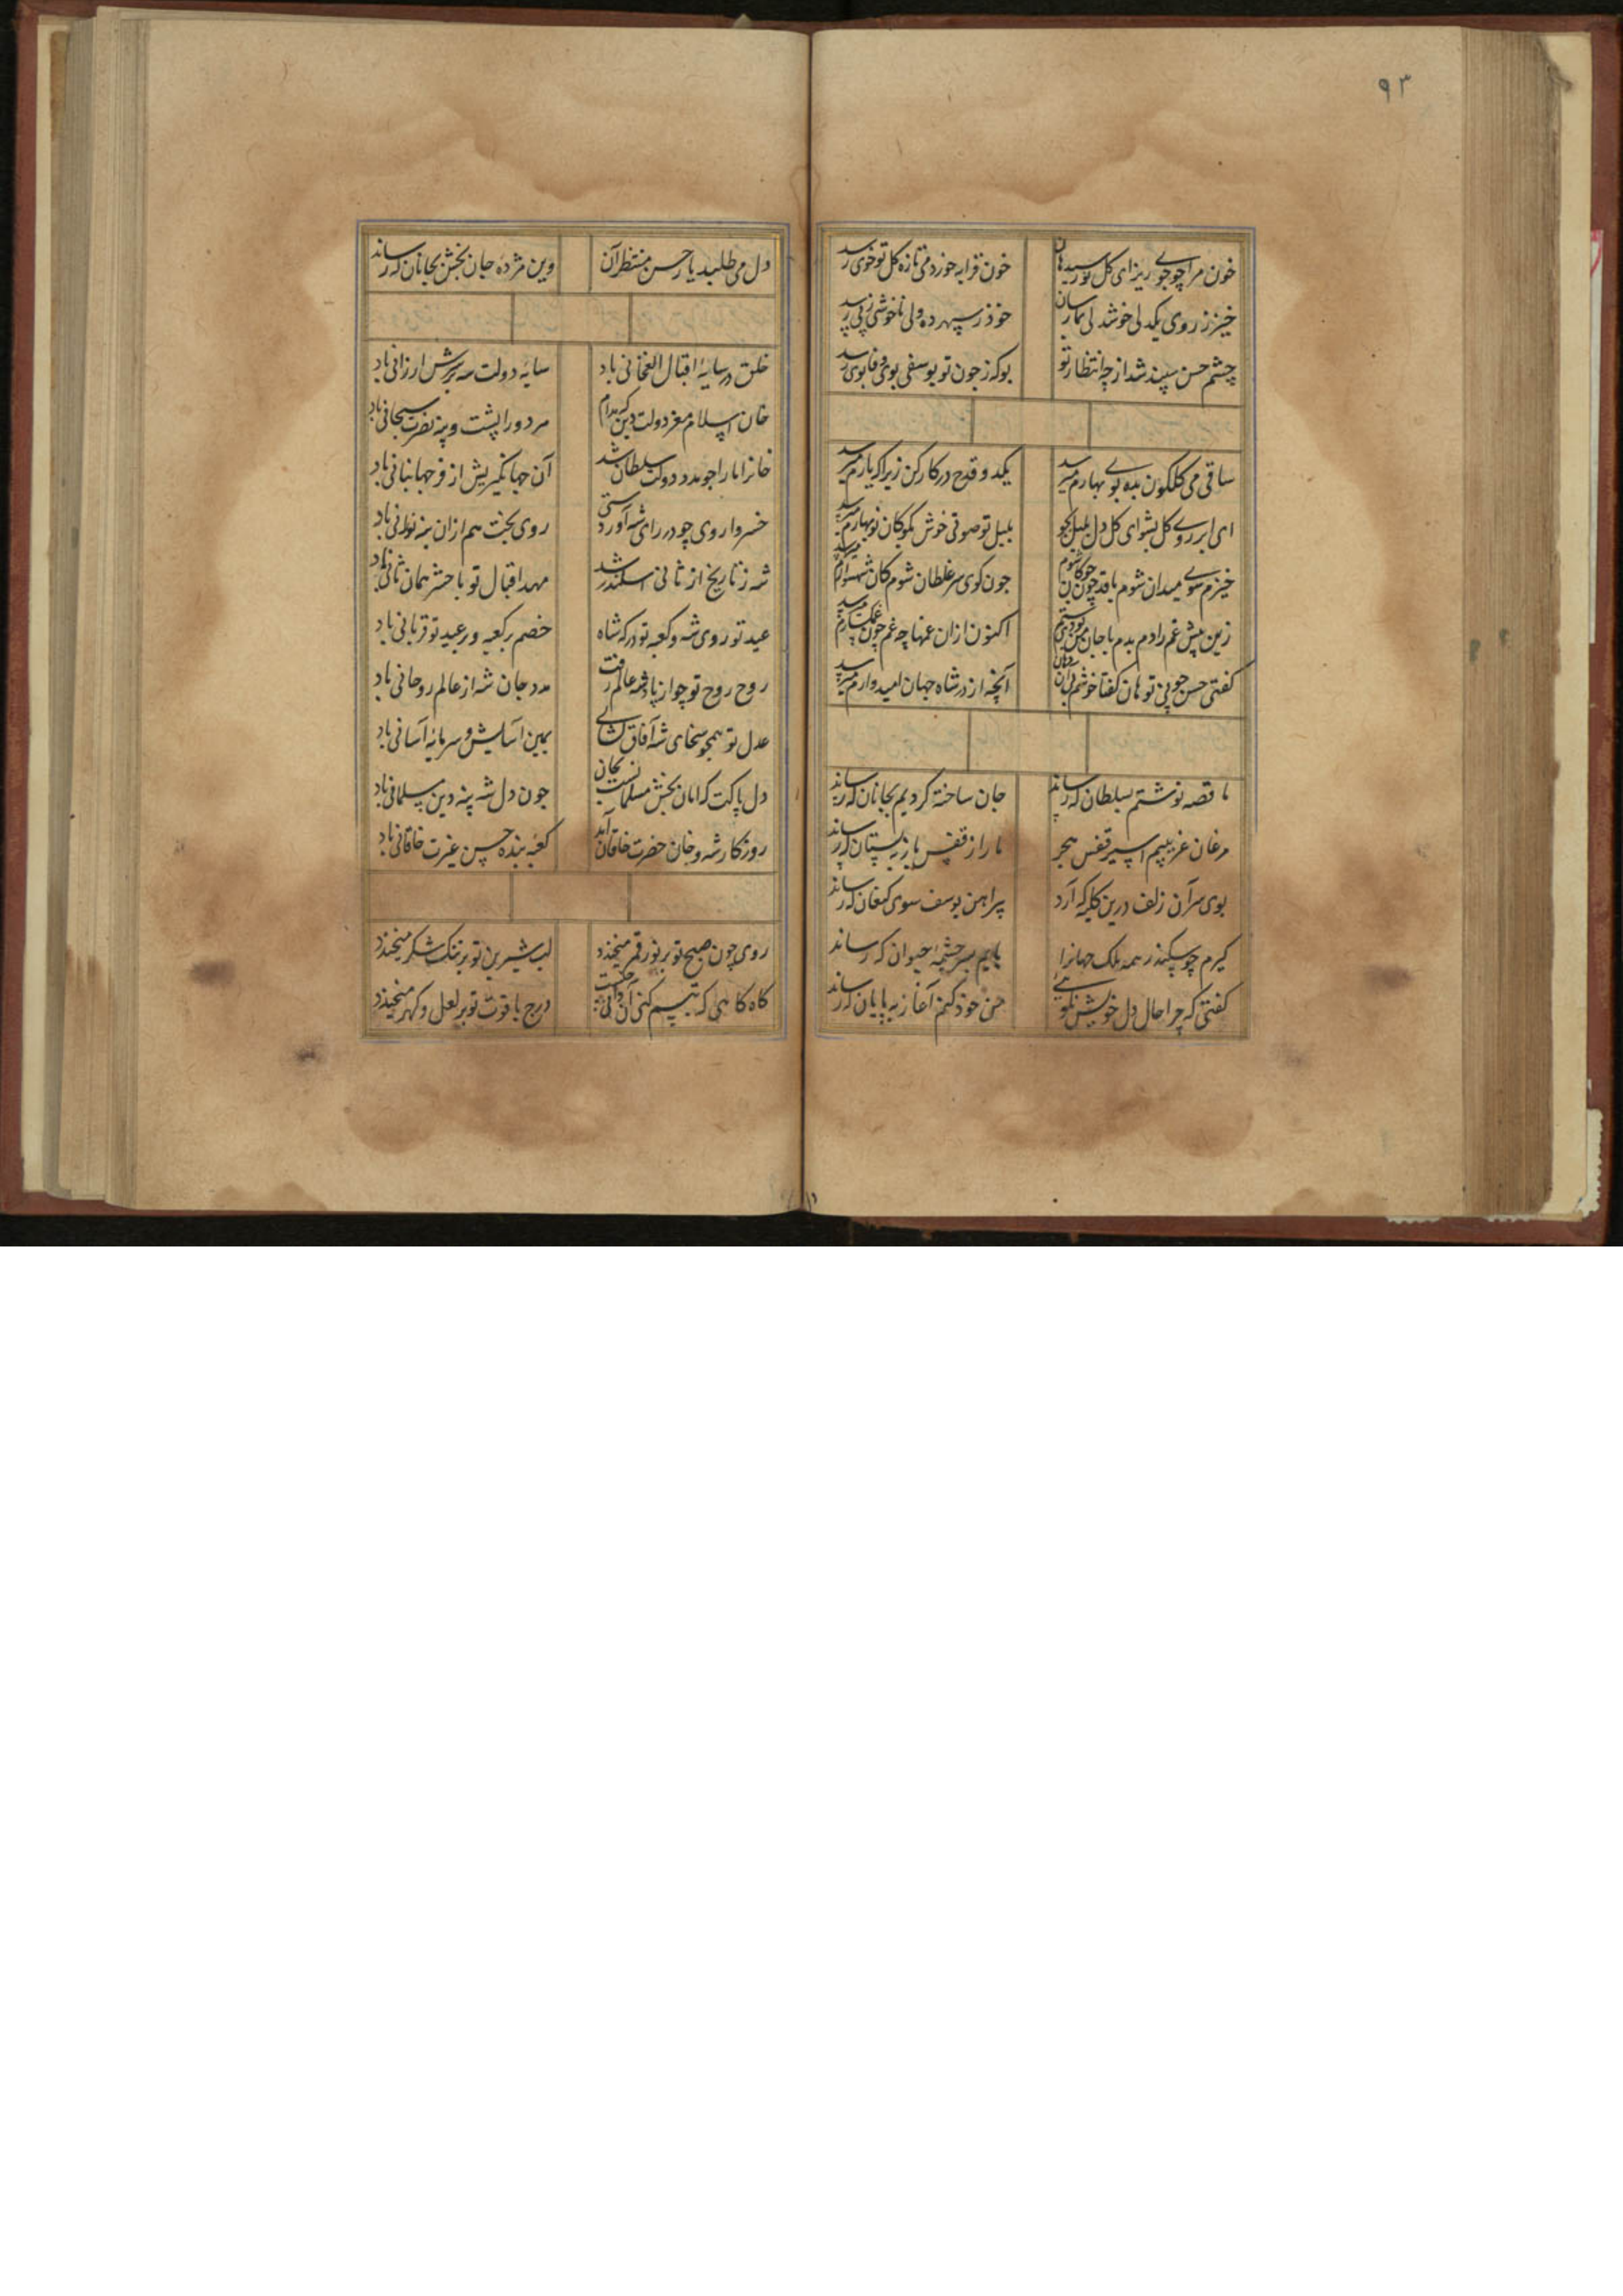 ۹۳
خون مرا چو جوی ریز ای کل نورسید هان
خون قرابه خورد می تازه کل تو خوی رسد
خیز ز روی یکدلی خوشدلی بما رسان
خوذ ز سپهر ده دلی ناخوشی ز پی رسد
چشم حسن سپید شد از چه انتظار تو
بو که ز چون تو یوسفی بوی وفا بوی رسد
ساقی می کلکون بده بوی بهارم میرسد
یکدو قدح در کار کن زیرا که یارم میرسد
ای ابر روی کل بشو ای کل دل بلبل بجو
بلبل تو صوتی خوش بکو کان نوبهارم میرسد
خیزم سوی میدان شوم با قد چون چوکان شوم
جون کوی سر غلطان شوم کان شهسوارم میرسد
زین پیش غم رادم بدم با جان من بودی ستم
اکنون ازان غمها چه غم چون غمکسارم میرسد
کفتی حسن چونی تو هان کفتا خوشم زیرا
آنچه از در شاه جهان امیدوارم میرسد
ما قصه نوشتیم بسلطان که رساند
جان ساخته کردیم بجانان که رساند
مرغان غریبیم اسیر قفس هجر
ما را ز قفس باز ببستان که رساند
بوی سر آن زلف درین کلبه که آرد
پیراهن یوسف سوی کنعان که رساند
کیرم چو سکندر همه ملک جهانرا
یابم بسر چشمه حیوان که رساند
کفتی که چرا حال دل خویش نکویی
من خوذ کنم آغاز بپایان که رساند
دل می طلبد یار حسن منتظر آن
وین مژده جان بخش بجانان که رساند
خلق در سایه اقبال الغخانی باد
سایه دولت شه بر سرش ارزانی باد
خان اسلام معز دولت دین که مدام
مر دو را پشت و پنه نصرت سبحانی باد
آن جهانکیریش از فر جهانبانی باد
خسروا روی چو در رای شه آورد ستی
روی بخت هم ازان پنه نورانی باد
شه ز تاریخ از ثانی اسکندر شد
مهد اقبال تو با حشر همان ثانی باد
عید تو روی شه و کعبه تو درکه شاه
خصم بر کعبه و بر عید تو قربانی باد
روح روح تو چو از پادشه عالم رفت
مدد جان شه از عالم روحانی باد
عدل تو همچو سخای شه آفاق کشای
بمین آسایش و سرمایه آسانی باد
دل پاکت که امان بخش مسلمانانست
جون دل شه پنه دین مسلمانی باد
روزکار شه و خان حضرت خاقان آمد
کعبه بنده حسن عزت خاقانی باد
روی چون صبح تو بر نور قمر میخندد
لب شیرین تو بر تنک شکر میخندد
کاه کاهی که تبسم کنی آن
درج یاقوت تو بر لعل و کهر میخندد